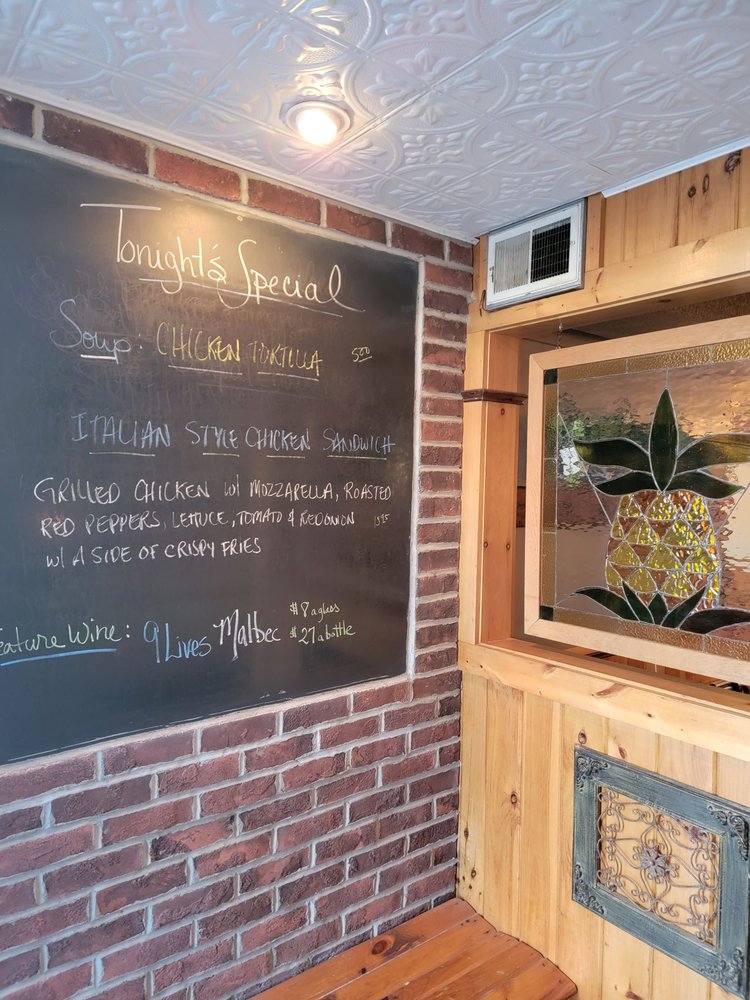 Tonight's Special
Soup: CHICKEN TORTILLA 5.00
ITALIAN STYLE CHICKEN SANDWICH
GRILLED CHICKEN w/ MOZZARELLA, ROASTED
RED PEPPERS, LETTUCE, TOMATO & RED ONION 13.95
w/ A SIDE OF CRISPY FRIES
eature Wine: 9 Lives Malbec $8 a glass
$27 a bottle